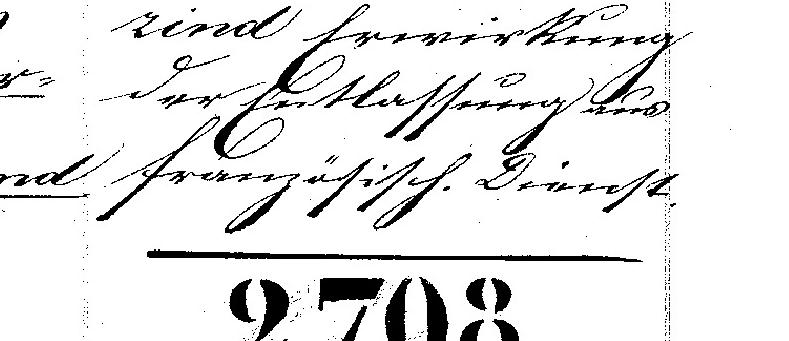 und Erwirkung
der Entlassung aus
französisch. Dienst.
2708